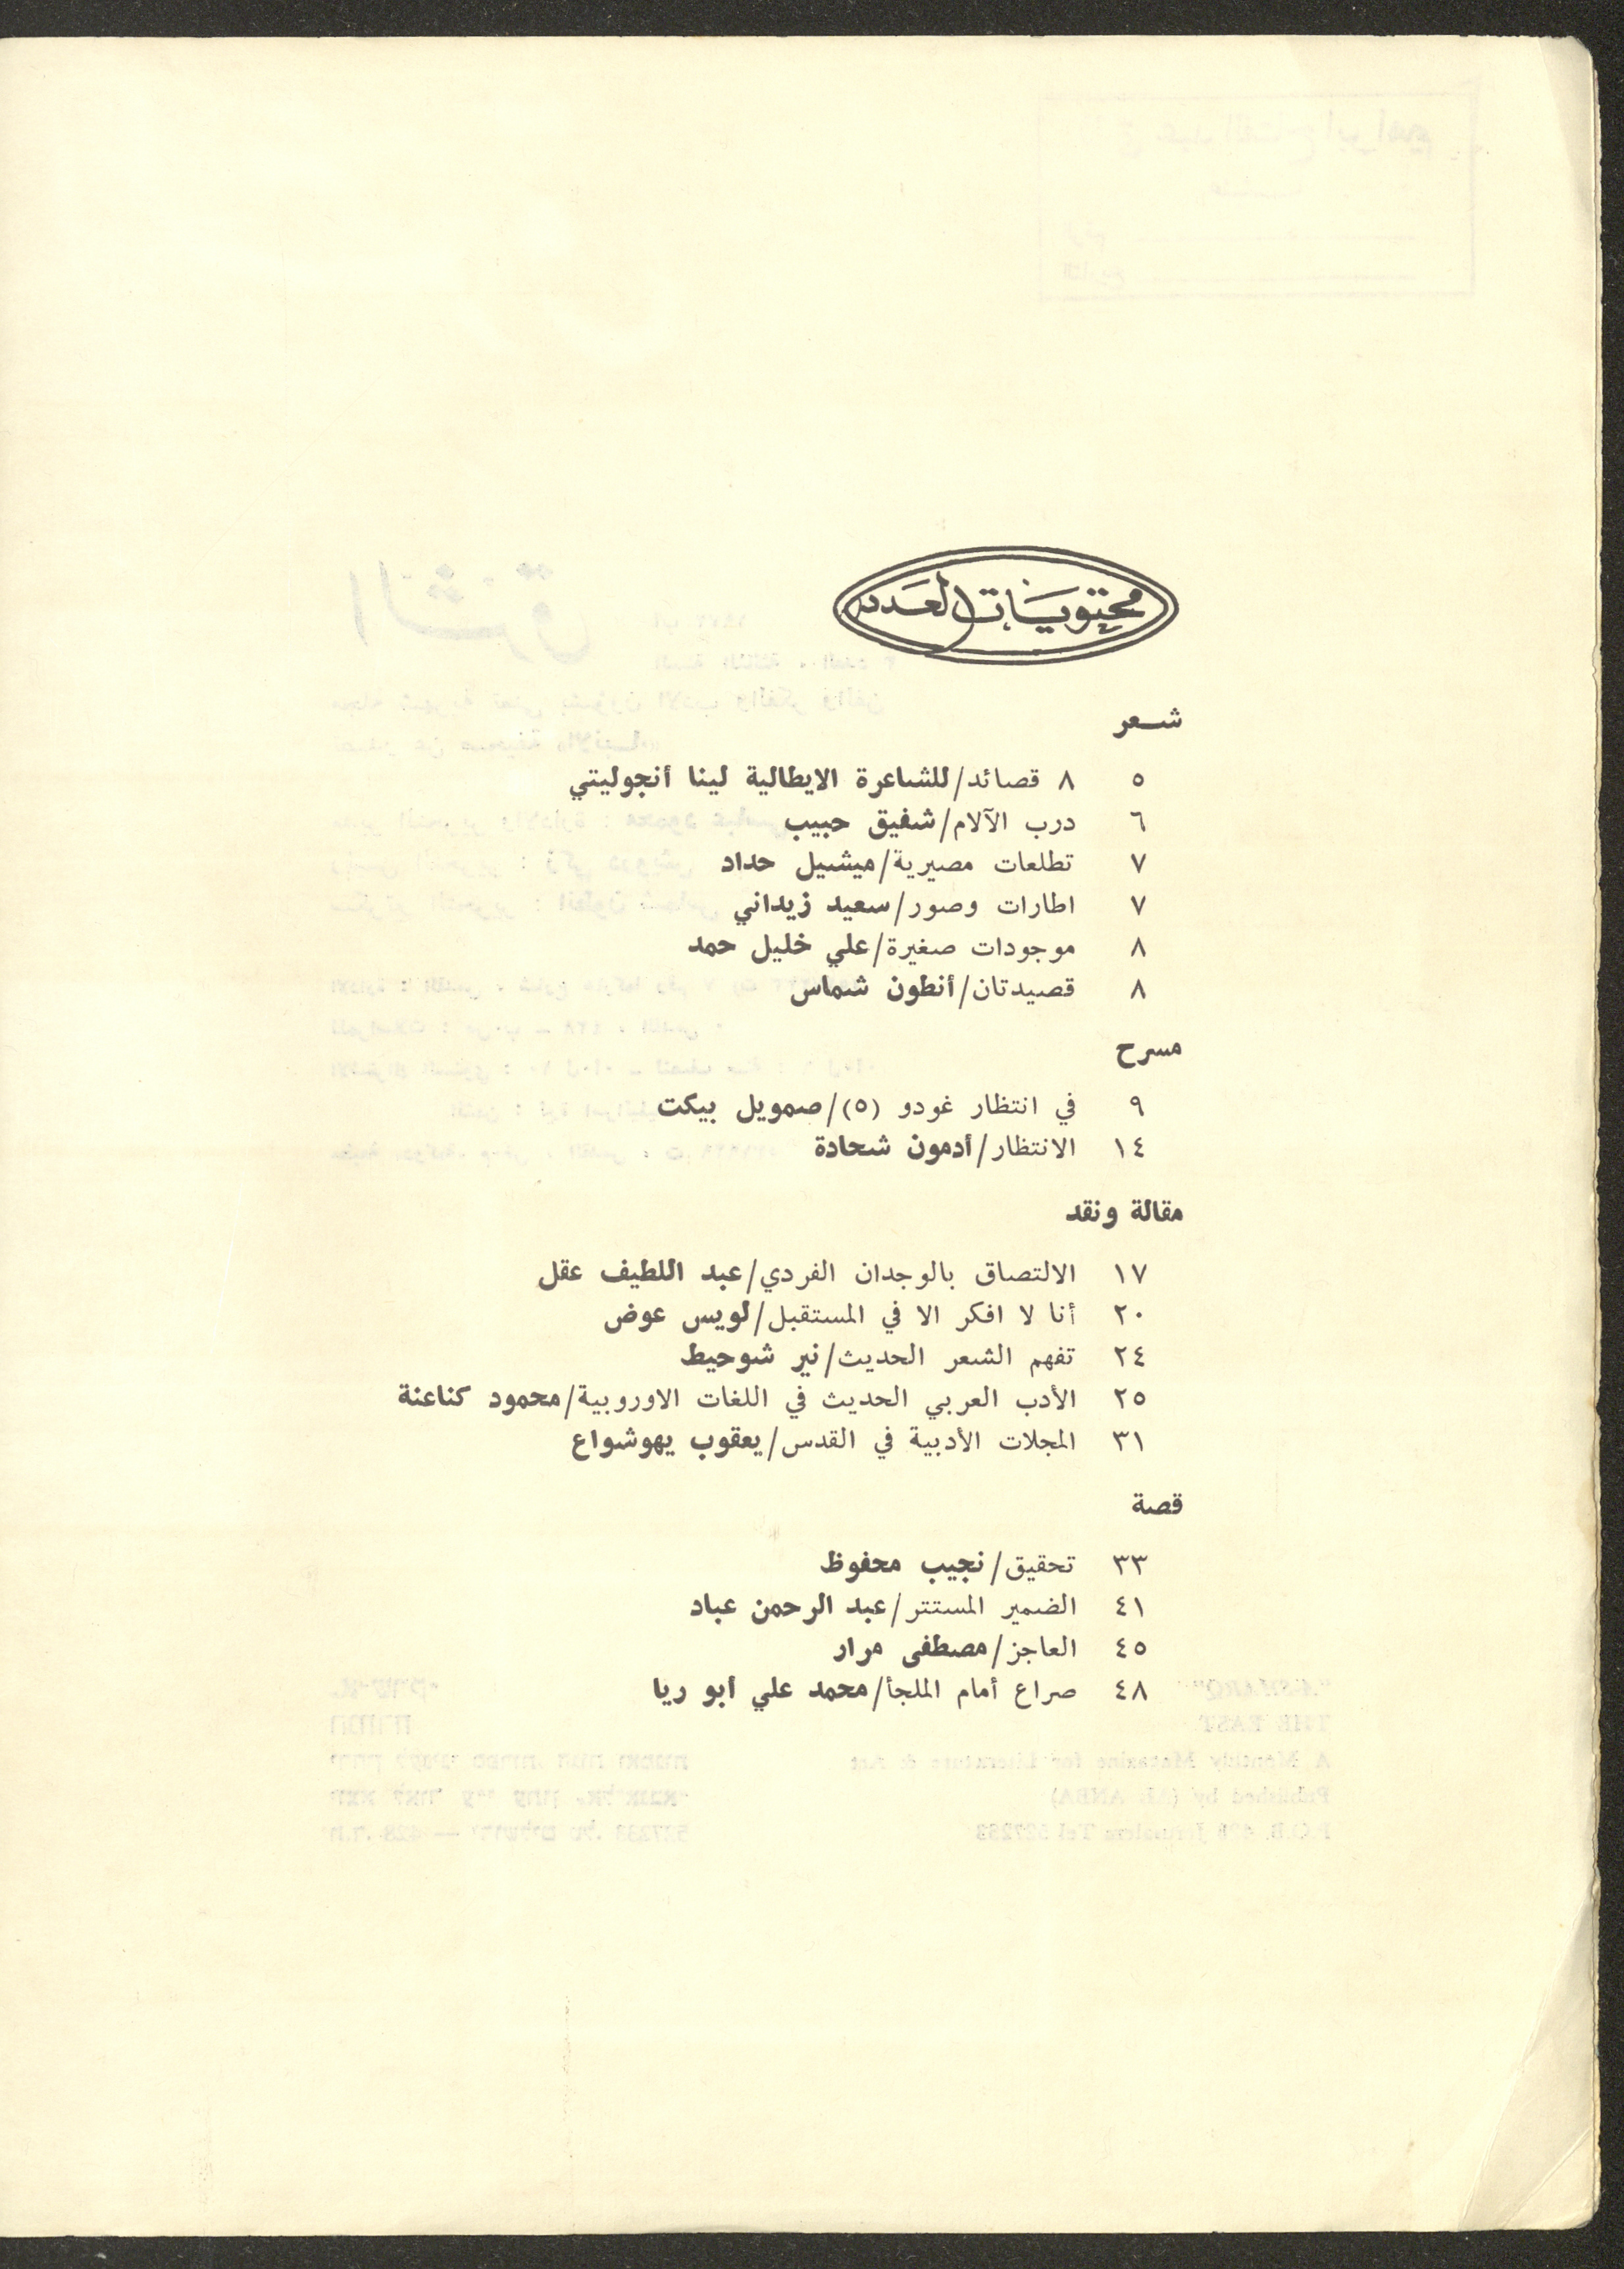 محتويات العدد
شعر
٥ ٨ قصائد/للشاعرة الايطالية لينا أنجوليتي
٦ درب الآلام/شفيق حبيب
٧ تطلعات مصيرية/ميشيل حداد
٧ اطارات وصور/سعيد زيداني
٨ موجودات صغيرة/علي خليل حمد
٨ قصيدتان/أنطون شماس
مسرح
٩ في انتظار غودو (٥)/صمويل بيكت
١٤ الانتظار/أدمون شحادة
مقالة ونقد
١٧ الالتصاق بالوجدان الفردي/عبد اللطيف عقل
٢٠ أنا لا افكر الا في المستقبل/لويس عوض
٢٤ تفهم الشعر الحديث/نير شوحيط
٢٥ الأدب العربي الحديث في اللغات الاوروبية/محمود كناعنة
٣١ المجلات الأدبية في القدس/يعقوب يهوشواع
قصة
٣٣ تحقيق/نجيب محفوظ
٤١ الضمير المستتر/عبد الرحمن عباد
٤٥ العاجز/مصطفى مرار
٤٨ صراع أمام الملجأ/محمد علي ابو ريا